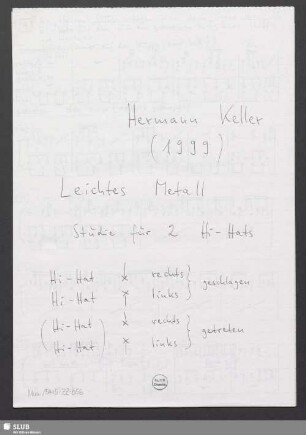 Hermann Keller
(1999)
Leichtes Metall
Studie für 2 Hi-Hats
Hi-Hat rechts } geschlagen
Hi-Hat links
(Hi-Hat rechts } getreten
Hi-Hat) links
SLUB
Wir führen Wissen.